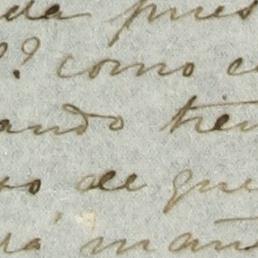 da pues
? como e
ando tien
so de que
rá mañ